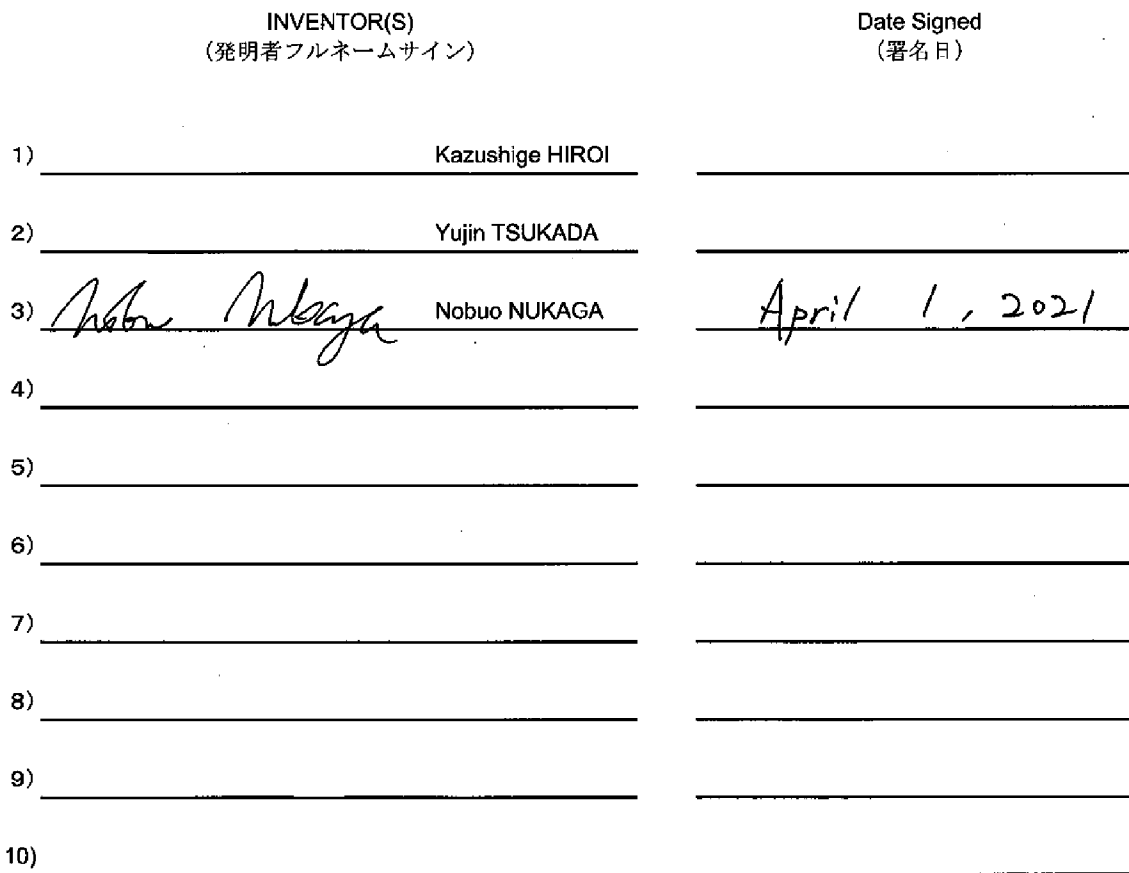 INVENTOR(S) Date Signed
(発明者フルネームサイン) (署名日)
1) Kazushige HIROI
2) Yujin TSUKADA
3) Nobuo Nukaga Nobuo NUKAGA April 1, 2021
4)
5)
6)
7)
8)
9)
10)